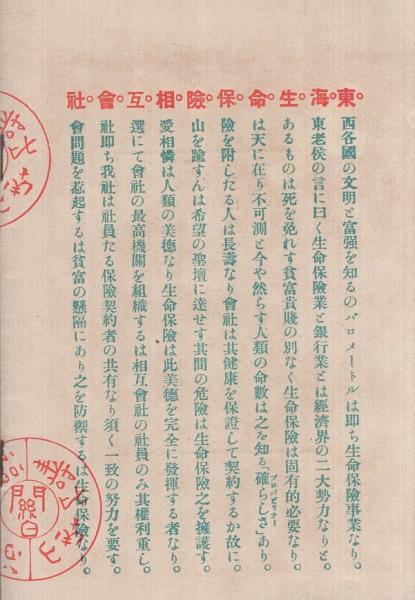 東西各國の文明と富强を知るのバロメートルは即ち生命保險事業なり。
海東老侯の言に曰く生命保險業と銀行業とは經濟界の二大勢力なりと。
生あるものは死を免れす貧富貴賤の別なく生命保險は固有的必要なり。
命は天に在り不可測と今や然らす人類の命數は之を知る「確らしさ」あり。
保險を附したる人は長壽なり會社は其健康を保證して契約するか故に。
險山を踰すんは希望の聖壇に達せす其間の危險は生命保險之を擁護す。
相愛相憐は人類の美德なり生命保險は此美德を完全に發揮する者なり。
互選にて會社の最高機關を組織するは相互會社の社員のみ其權利重し。
會社即ち我社は社員たる保險契約者の共有なり須く一致の努力を要す。
社會問題を惹起するは貧富の懸隔にあり之を防禦するは生命保險なり。